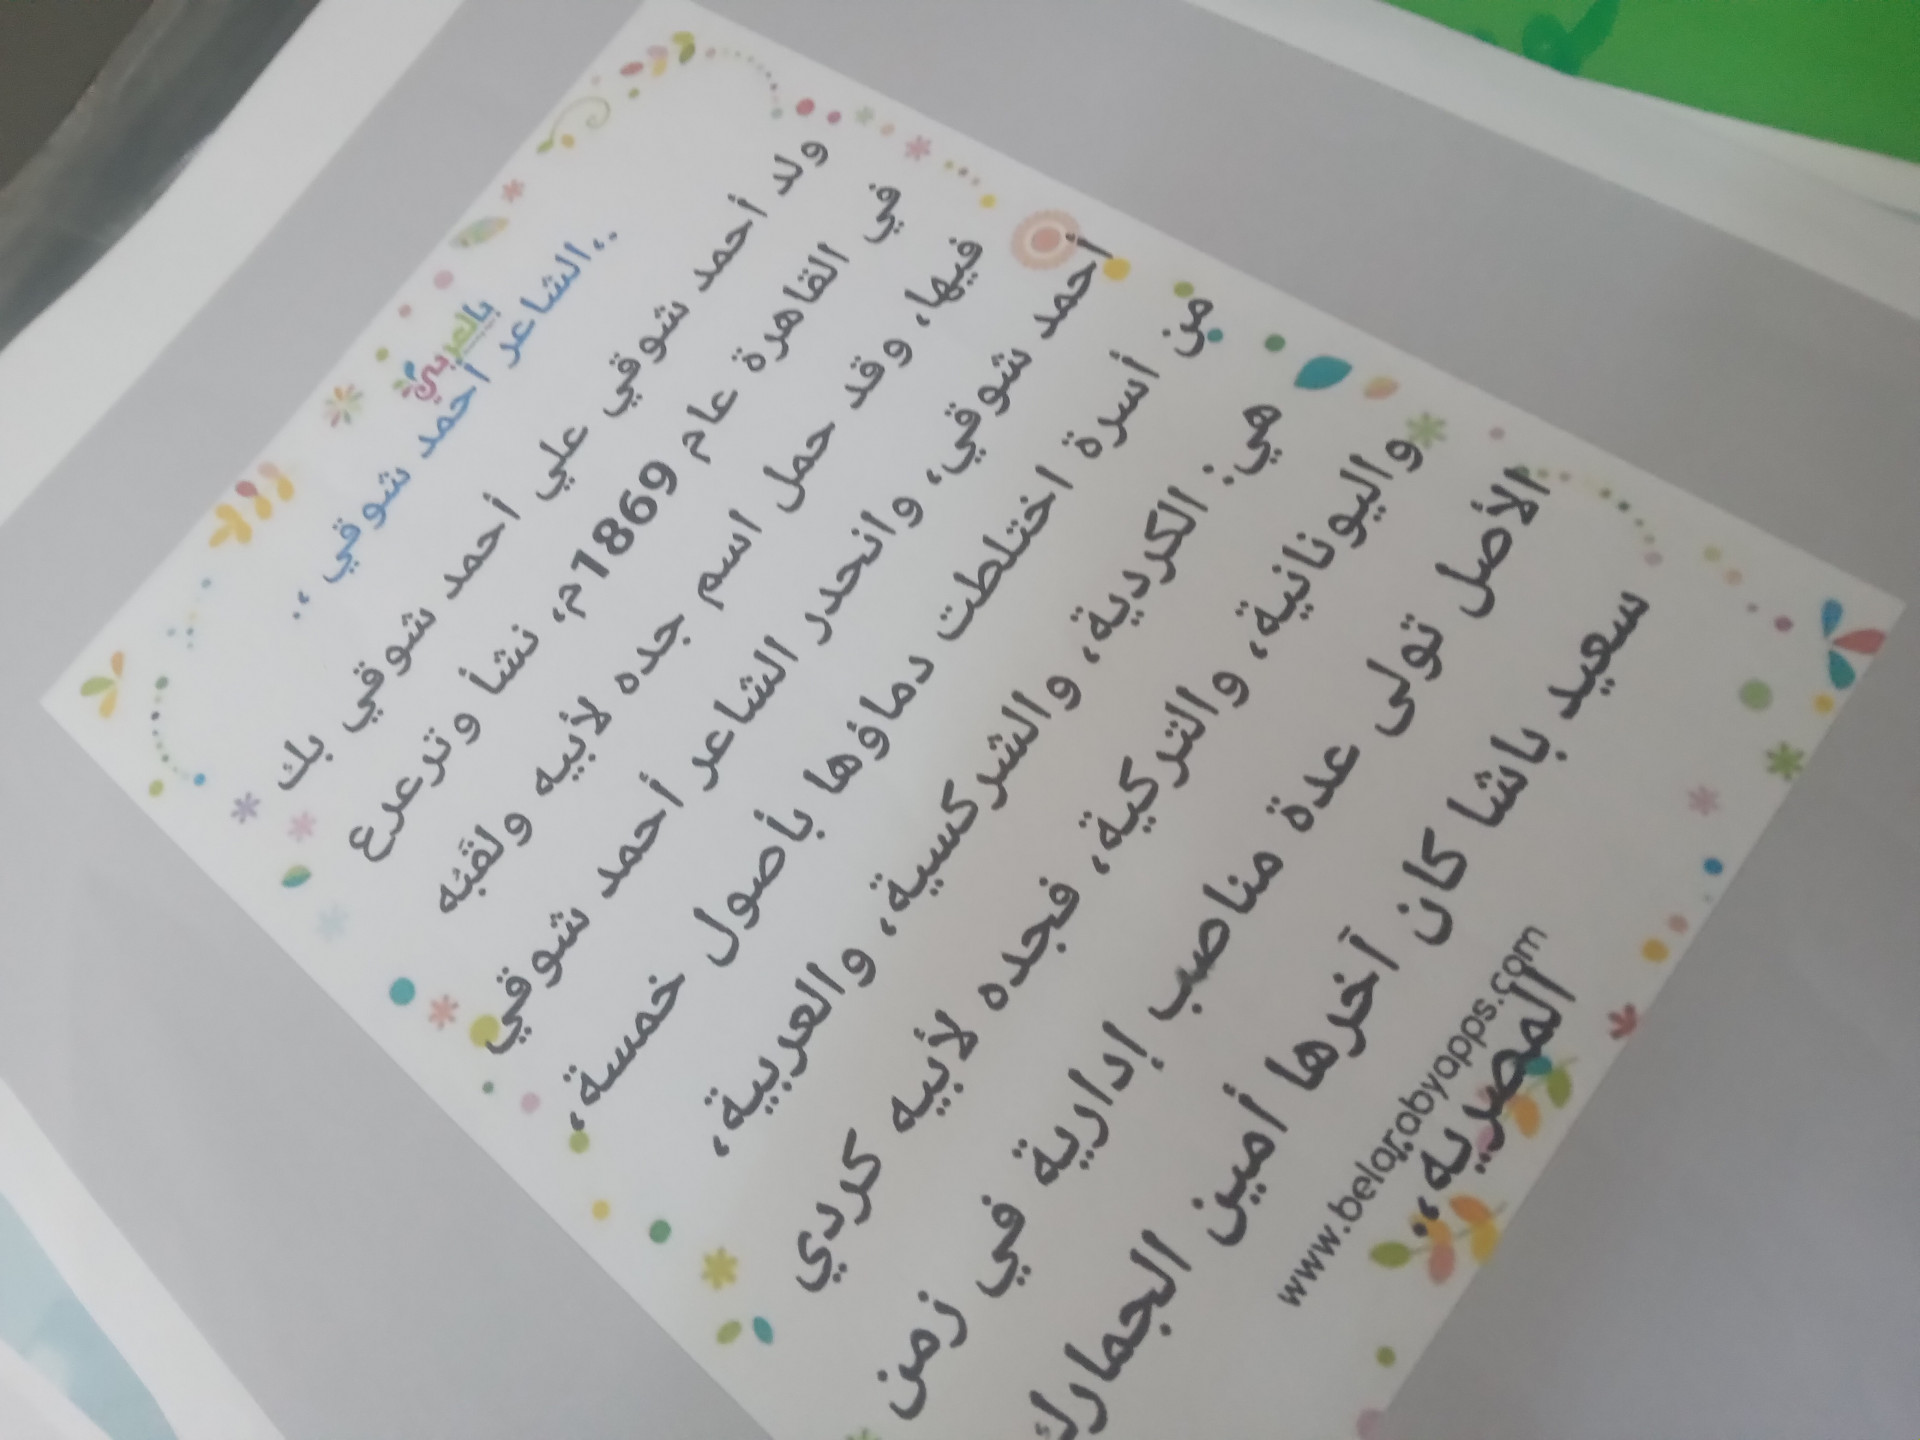 بالعربي
،،الشاعر أحمد شوقي ،،
ولد أحمد شوقي علي أحمد شوقي بك
في القاهرة عام 1869م، نشأ وترعرع
فيها، وقد حمل اسم جده لأبيه ولقبه
أحمد شوقي، وانحدر الشاعر أحمد شوقي
من أسرة اختلطت دماؤها بأصول خمسة،
هي: الكردية، والشركسية، والعربية،
واليونانية، والتركية، فجده لأبيه كردي
الأصل تولى عدة مناصب إدارية في زمن
سعيد باشا كان آخرها أمين الجمارك
المصرية،،
www.belarabyapps.com